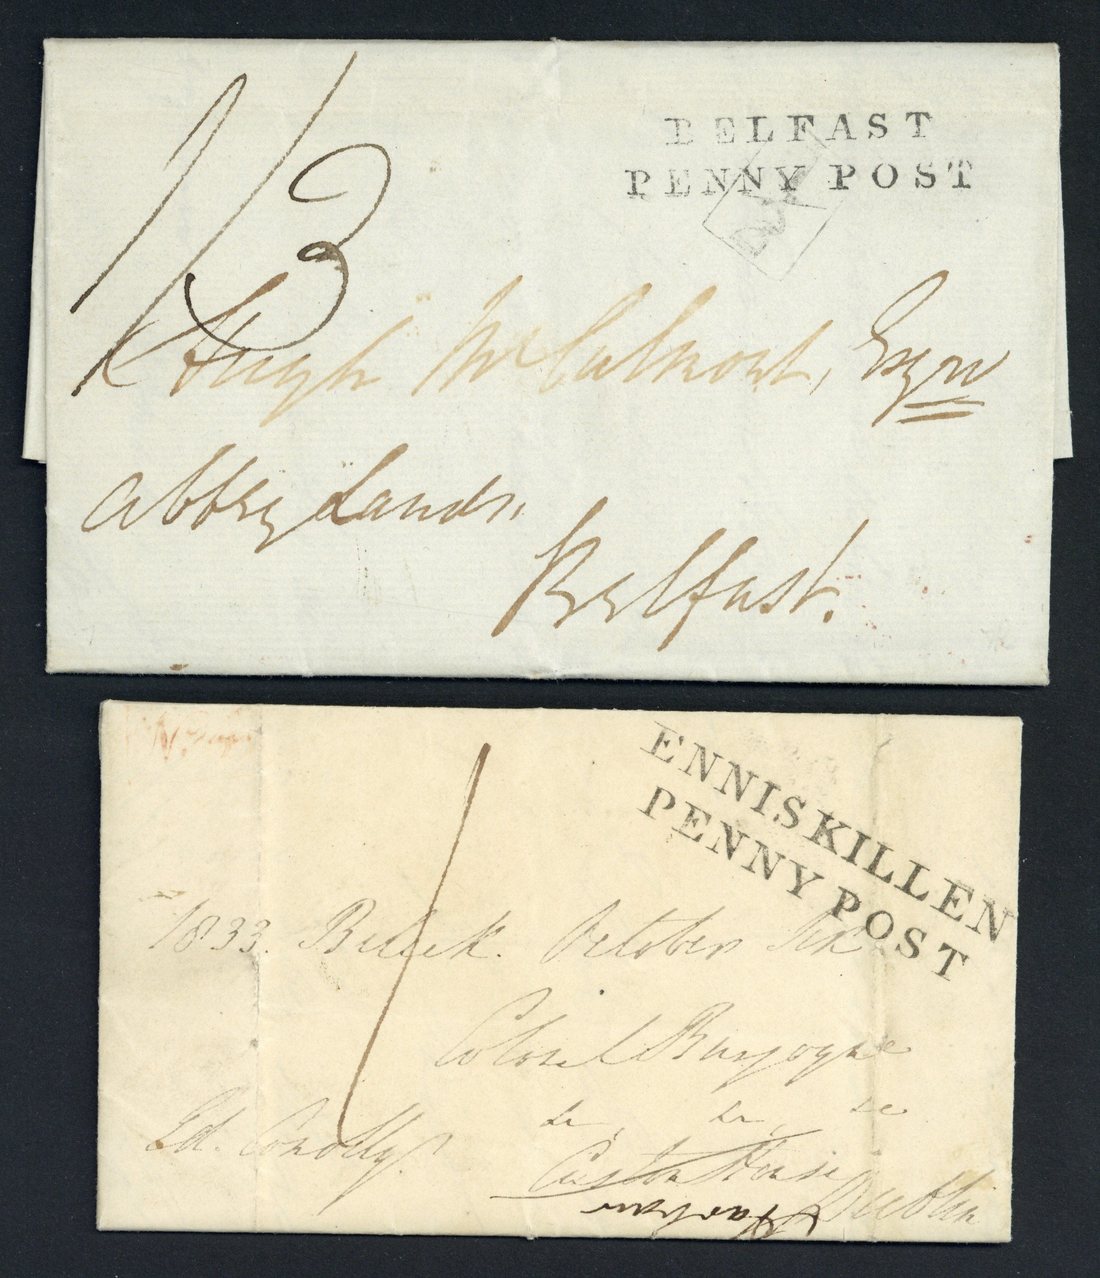 1/3
BELFAST
PENNY POST
Hugh McCalmont, Esqre
Abbey Lands,
Belfast.
ENNISKILLEN
PENNY POST
1
1833. Beleek. October
Colonel Burgoyne
&c, &c, &c
Ed. Conolly.
Custom House
Dublin